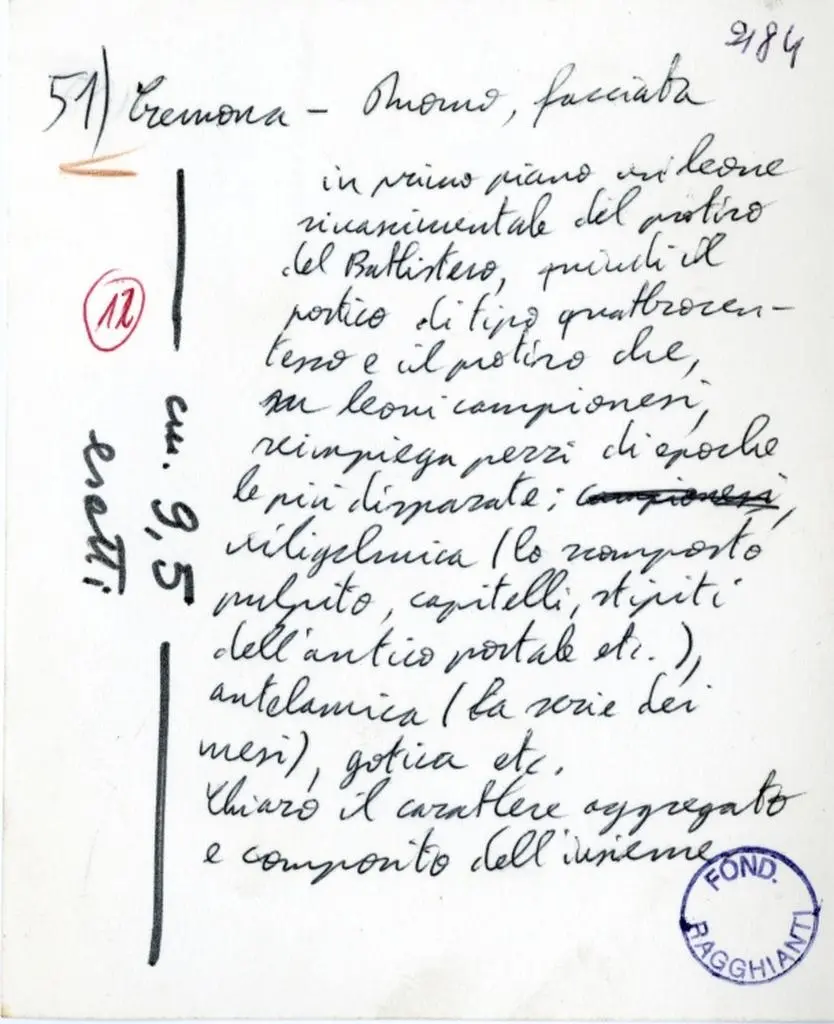 2184
51) Cremona - Duomo, facciata
in primo piano un leone
rinascimentale del protiro
del Battistero, quindi il
portico di tipo quattrocen-
tesco e il protiro che,
su leoni campionesi,
reimpiega pezzi di epoche
le più disparate; campionesi,
viligelmica (lo scomposto
pulpito, capitelli, stipiti
dell'antico portale etc.),
antelamica (la serie dei
mesi), gotica etc.
Chiaro il carattere aggregato
e composito dell'insieme
12
cm. 9,5
esatti
FOND.
RAGGHIANTI